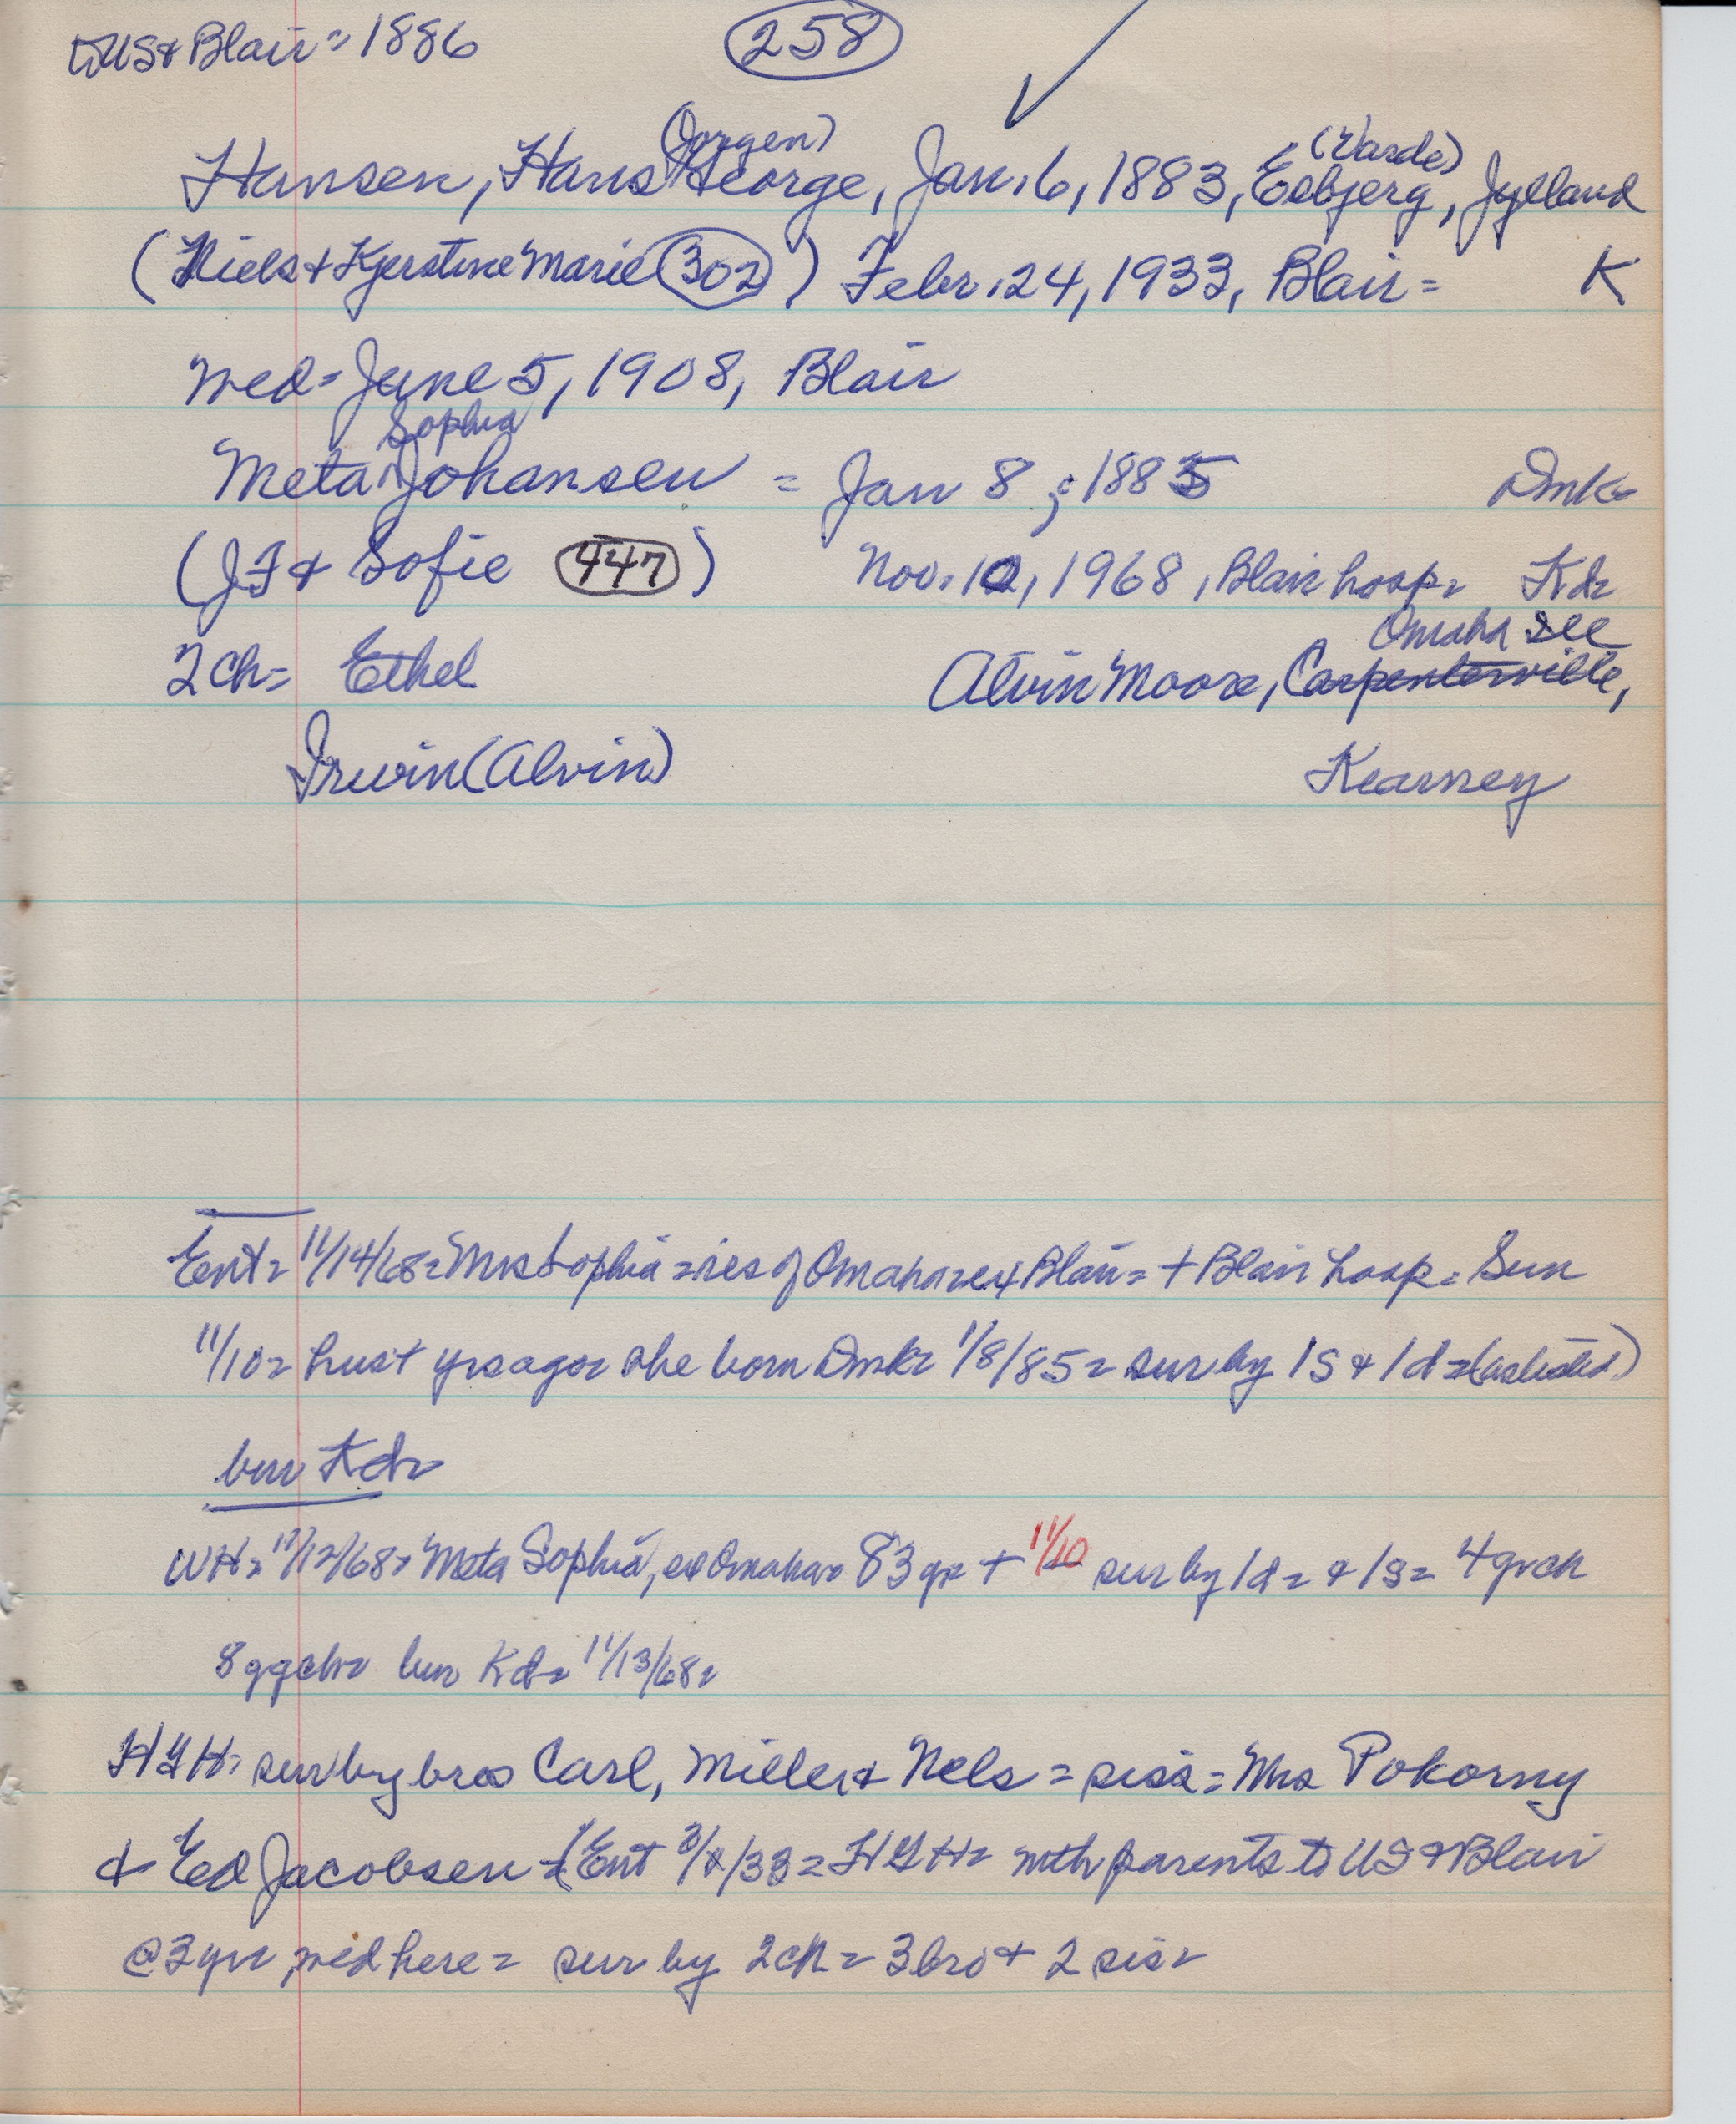 to US & Blair = 1886
258
(Jorgen)
Hansen, Hans George, Jan. 6, 1883, Esbjerg, (Varde) Jylland
(Niels & Kjerstine Marie 302) Febr. 24, 1933, Blair = K
med = June 5, 1908, Blair
Sophia
Meta Johansen = Jan 8, 1885 Dmk =
(JF & Sofie 447) Nov. 10, 1968, Blair hosp = Kd =
Omaha see
2 ch = Ethel Alvin Moore, Carpenterville,
Irwin (Alvin) Kearney
Ent = 11/14/68 = Mrs Sophia = res of Omaha = ex Blair = + Blair hosp = Sun
11/10 = hus + yrs ago = she born Dmk = 1/8/85 = sur by 1 s & 1 d = (as listed)
bur Kd =
WH = 11/12/68 = Meta Sophia, ex Omaha = 83 yr + 11/10 sur by 1 d = & 1 s = 4 grch
8 ggch = bur Kd = 11/13/68 =
HGH = sur by bros Carl, Miller & Nels = siss = Mrs Pokorny
& Ed Jacobsen = (Ent 3/ /33 = HGH = with parents to US & Blair
@ 3 yr, med here = sur by 2 ch = 3 bro + 2 sis =